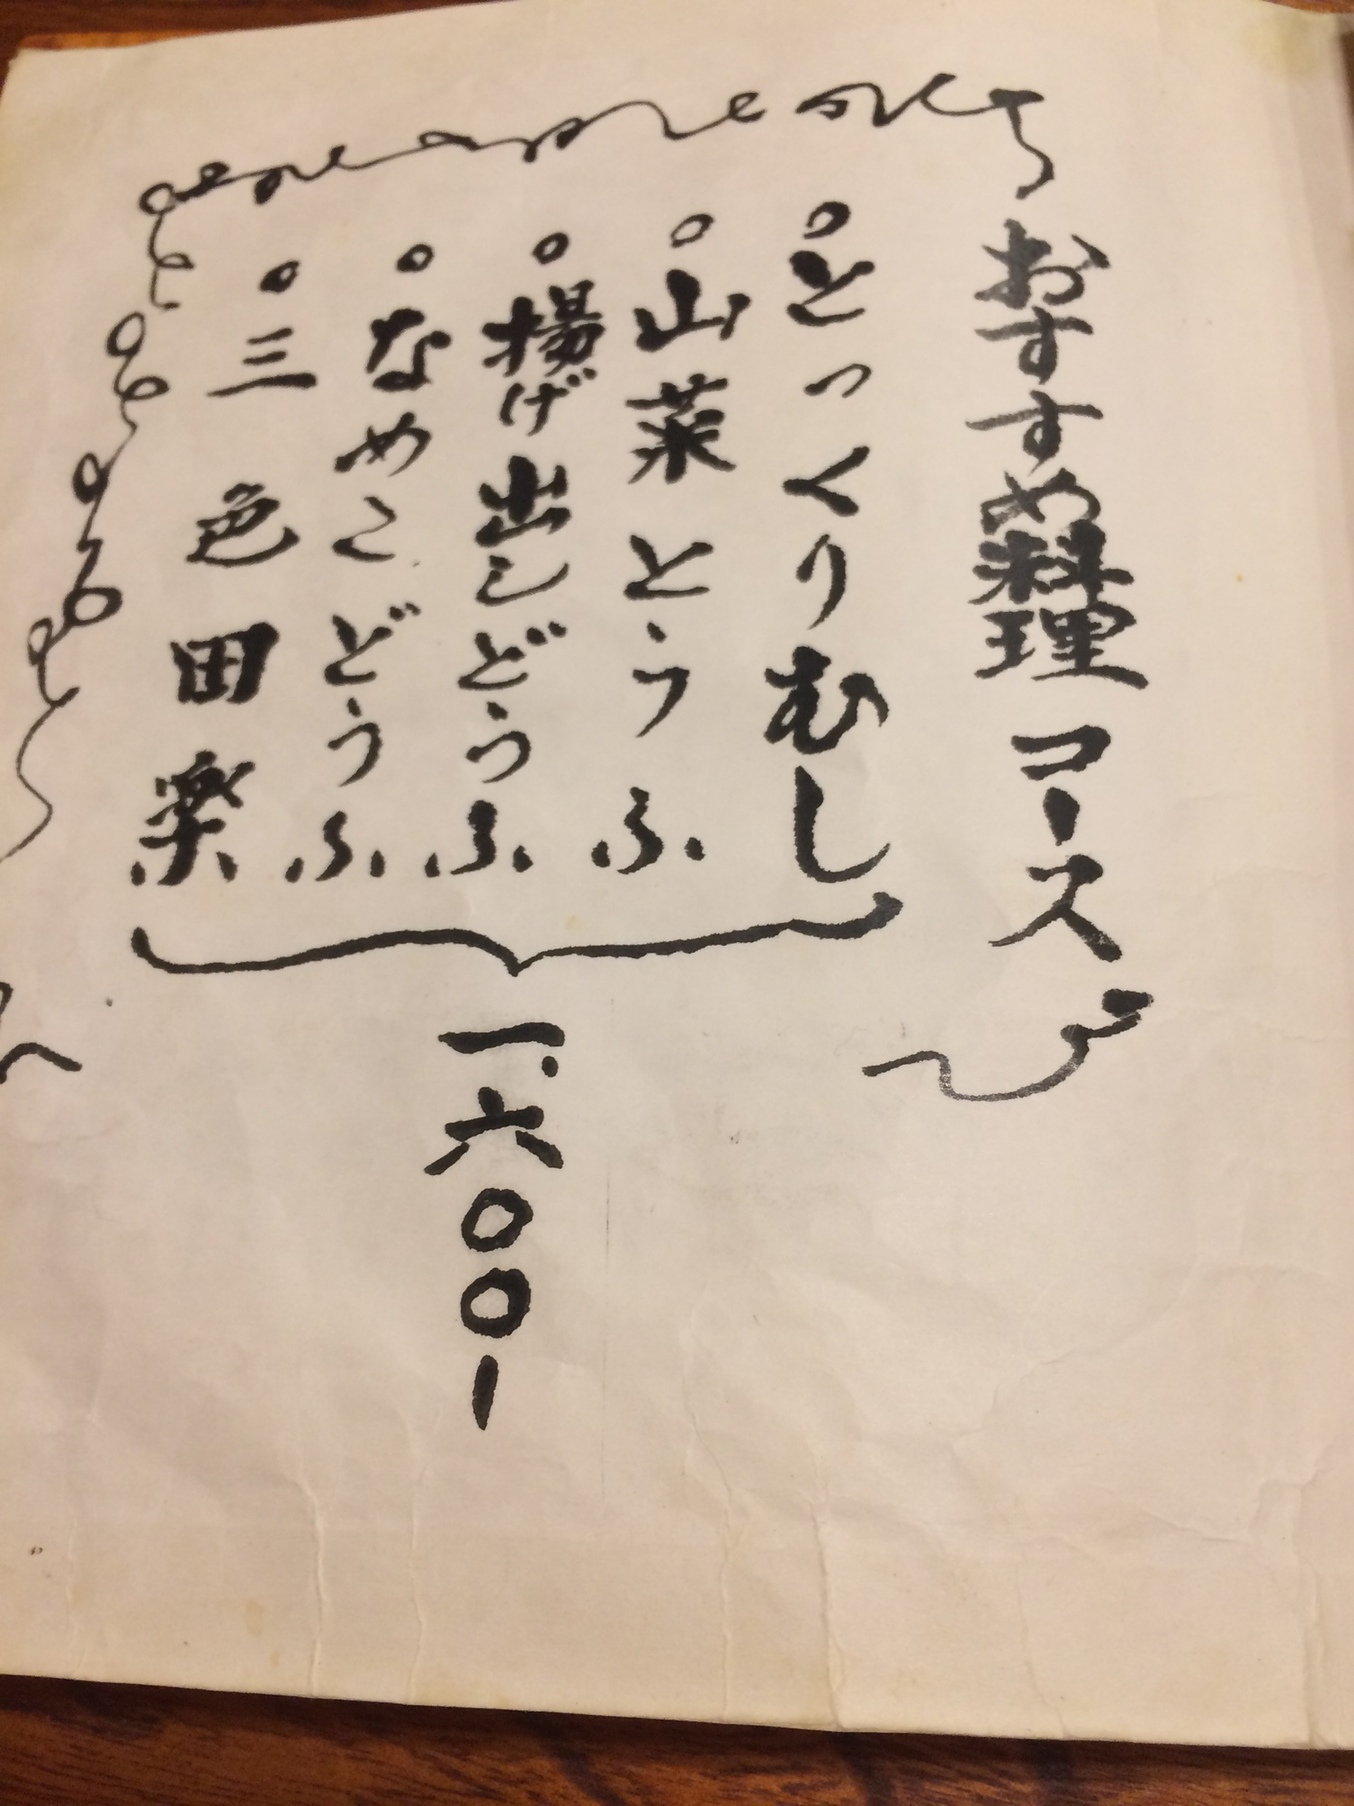 おすすめ料理コース
○とっくりむし
○山菜とうふ
○揚げ出しどうふ
○なめこどうふ
○三色田楽
一.六〇〇ー